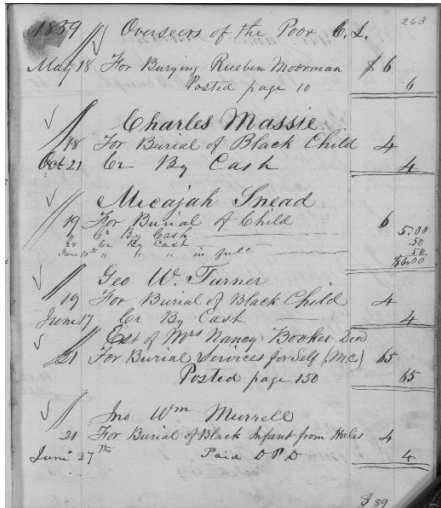 263
1839 Overseers of the Poor C. L.
May 18 For Burying Reuben Moorman $ 6
Posted page 10 6
Charles Massie
18 For Burial of Black Child 4
Oct 21 Cr By Cash 4
Micajah Snead
19 For Burial of Child 6
9 Cr By Cash 5.00
28 Cr By Cash .50
June 10th " " " in full .50
$6.00
Geo W. Turner
19 For Burial of Black Child 4
June 17 Cr By Cash 4
Est of Mrs Nancy Booker Decd
21 For Burial Services for Self (M.C.) 65
Posted page 150 65
Jno Wm Murrell
21 For Burial of Black Infant from Hales 4
June 27th Paid D P D 4
$ 89